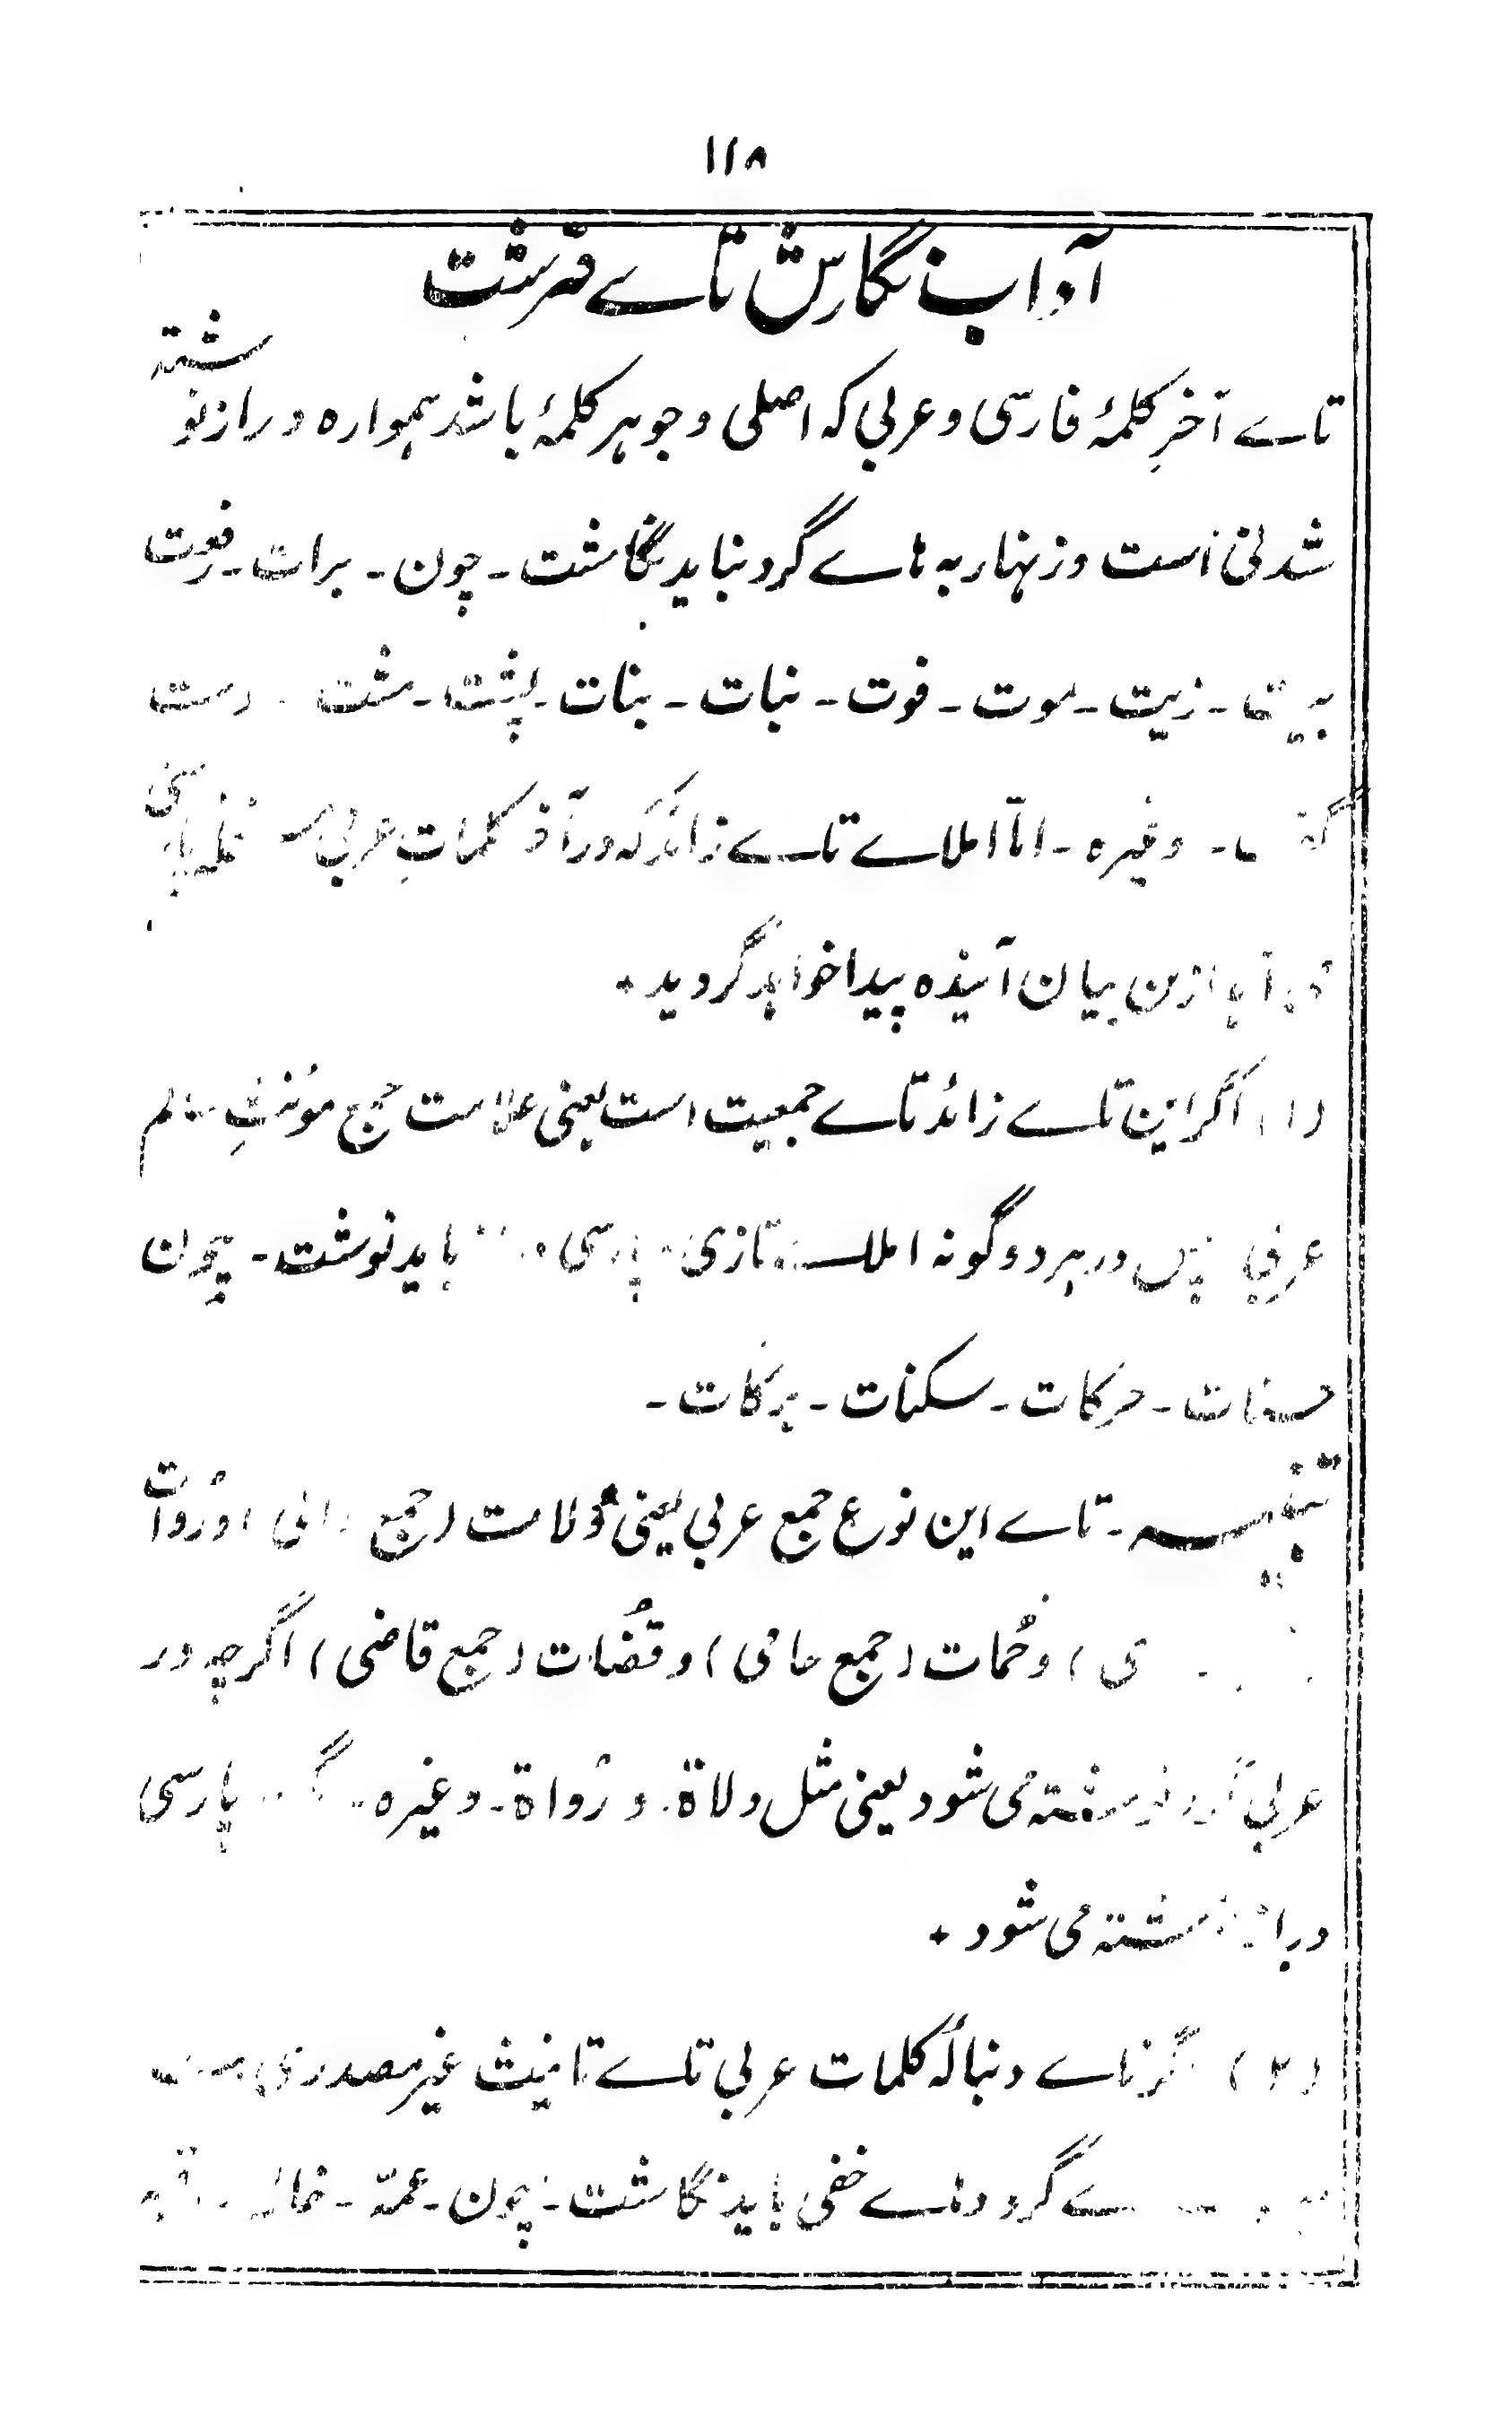 ۱۱۸
آداب نگارش تاے قرشت
تاے آخرِ کلمۂ فارسی و عربی که اصلی و جوہر کلمۂ باشد ہمواره دراز نوشتہ
شدنی است و زنہار به ہاے گرد نباید نگاشت ۔ چون ۔ برات ۔ رفعت
زیت ۔ موت ۔ فوت ۔ نبات ۔ بنات ۔ پشت ۔ مشت ۔ دست
وغیره ۔ امّا املاے تاے زائد که در آخر کلماتِ عربی
ازین بیان آینده پیدا خواہد گردید ٭
(۱) اگر این تاے زائد تاے جمعیت است یعنی علامت جمع مونثِ سالم
عربی پس در ہر دو گونہ املاے تازی پارسی باید نوشت ۔ چون
حسنات ۔ حرکات ۔ سکنات ۔ برکات ۔
تنبیہ ۔ تاے این نوع جمع عربی یعنی وُلات (جمع والی) و رُوات
و حُمات (جمع حامی) و قُضات (جمع قاضی) اگرچہ در
عربی نوشتہ می شود یعنی مثل ولاة ۔ و رُواة ۔ وغیره پارسی
دراز نوشتہ می شود ٭
(۲) اگر تاے دنبالۂ کلمات عربی تاے تانیث غیر مصدری
گرد و ہاے خفی باید نگاشت ۔ چون ۔ عمّہ ۔ خالہ ۔